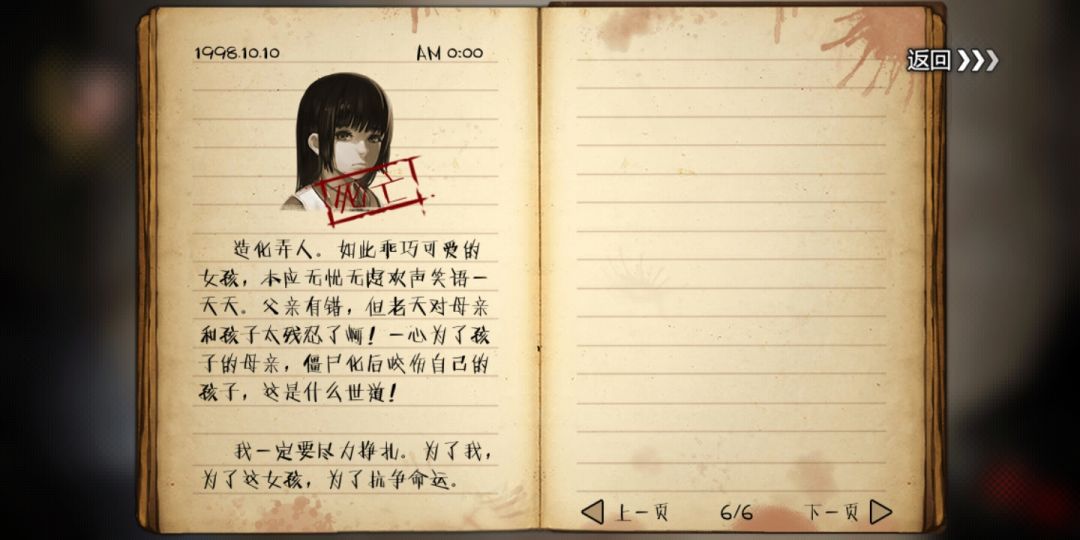 1998.10.10 AM 0:00
返回
死亡
造化弄人。如此乖巧可爱的
女孩，本应无忧无虑欢声笑语一
天天。父亲有错，但老天对母亲
和孩子太残忍了啊！一心为了孩
子的母亲，僵尸化后咬伤自己的
孩子，这是什么世道！
我一定要尽力挣扎。为了我，
为了这女孩，为了抗争命运。
上一页 6/6 下一页